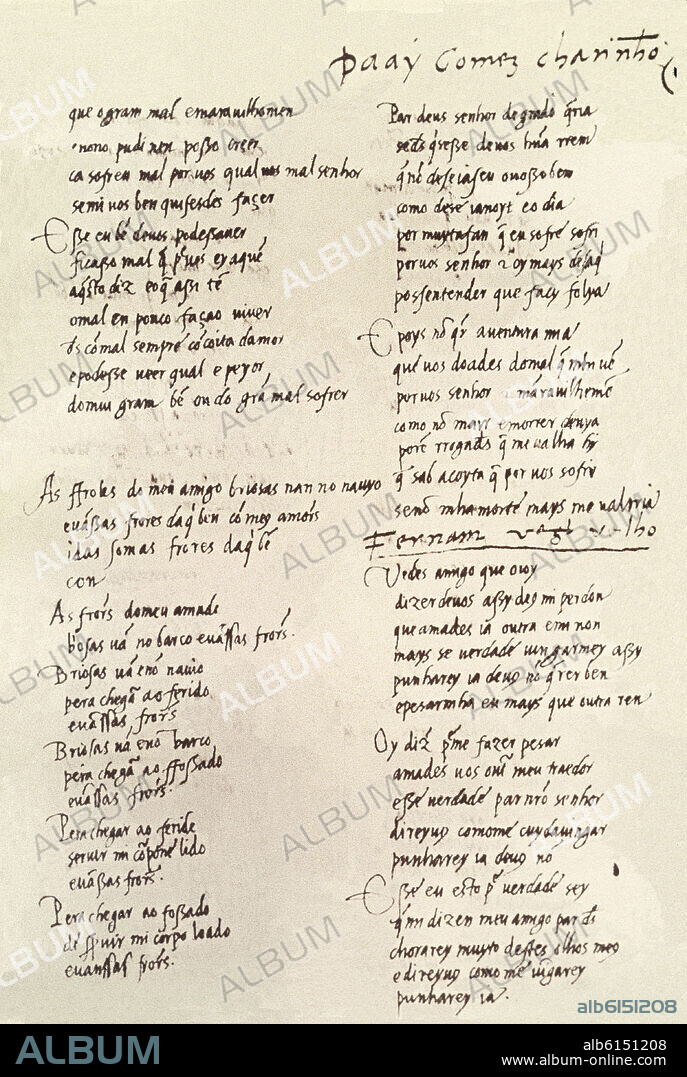 Paay Gomez charinho
que o gram mal e maravilhomen
nono pudi nen posso creer
ca sofreu mal por vos qual vos mal senhor
semi vos ben quisesdes façer
Esse eu bē devos podessaver
ficasso mal q̄ p̄ves ey aquē
aq̄sto diz eoq̄ assi tē
omal en pouco façao viver
cōmal sempre cōcoita damor
epodesse veer gual e peyor
domui gram bē ou do grā mal sofrer
As ffroles do meu amigo briosas van no navyo
evāssas frores daq̄ ben cō meus amorˢ
idas som as frores daq̄ bē
con
As frorˢ do meu amado
bosas vā no barco evāssas frorˢ.
Briosas vā eno navio
pera chegā ao ferido
evāssas frorˢ
Briosas vā eno barco
pera chegā ao ffossado
evāssas frorˢ.
Pera chegar ao feride
servir mi cōpone lido
evāssas frorˢ.
Pera chegar ao fossado
de vir mi corpo loado
evanssas frorˢ.
Par deus senhor de grado q̄ria
sedˢ q̄sesse de vos hūa rrem
q̄nō deseiasseu o vosso ben
como dese ianoyt e o dia
por muyt afan q̄ eu sofrē sofri
por vos senhor oy mays desaq̄
poss entender que façy folya
E poys nō q̄r aventura mia
que vos doades do mal q̄ mēn vē
por vos senhor maravilhemē
como nō mayr e morrer devya
porē rrogadˢ q̄ me valha hy
q̄ sab a coyta q̄ por vos sofri
senō mha morte mays me valrria
Fernam velho
Vedes amigo que oj oy
dizer de vos assy deᵍ mi perdon
que amades ia outra e mī non
mays se verdade vingarmey assy
punharey ia deuos nō q̄rer ben
e pesarmha eu mays que outra ren
Oy diz p̄ me fazer pesar
amades vos outᵃ meu traedor
esse verdade par nro senhor
direyvos como me cuyd a vingar
punharey ia devos nō
E sse eu esto pᵉ verdade sey
q̄ mi dizen meu amigo par dˢ
chorarey muyto destes olhos meᵍ
e direyvos como me vigarey
punharey ia.
ALBUM
alb6151208
ALBUM
alb6151208
www.album-online.com